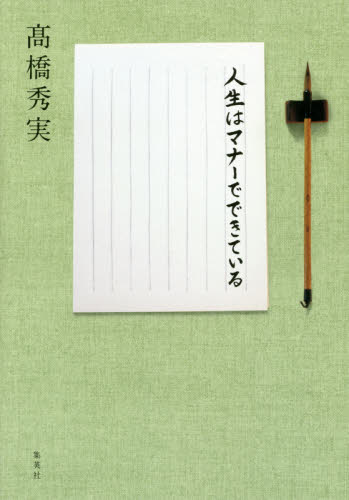 髙橋秀実
人生はマナーでできている
集英社